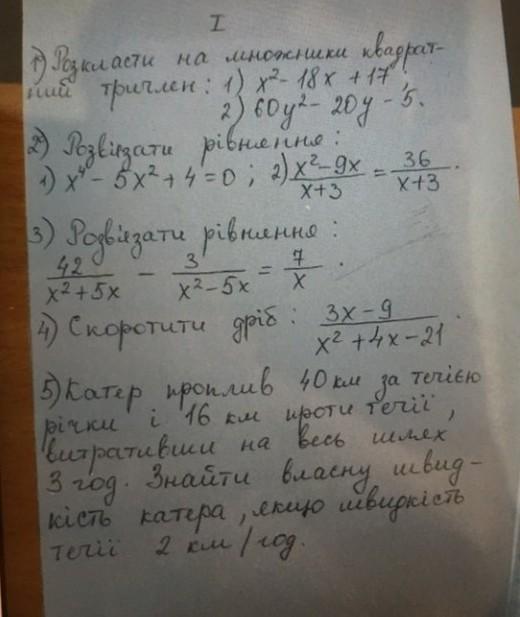 I
1) Розкласти на множники квадрат-
ний тричлен: 1) x² - 18x + 17;
2) 60y² - 20y - 5.
2) Розв'язати рівняння:
1) x⁴ - 5x² + 4 = 0; 2) (x² - 9x)/(x+3) = 36/(x+3).
3) Розв'язати рівняння:
42/(x² + 5x) - 3/(x² - 5x) = 7/x.
4) Скоротити дріб: (3x - 9)/(x² + 4x - 21).
5) Катер проплив 40 км за течією
річки і 16 км проти течії,
витративши на весь шлях
3 год. Знайти власну швид-
кість катера, якщо швидкість
течії 2 км/год.